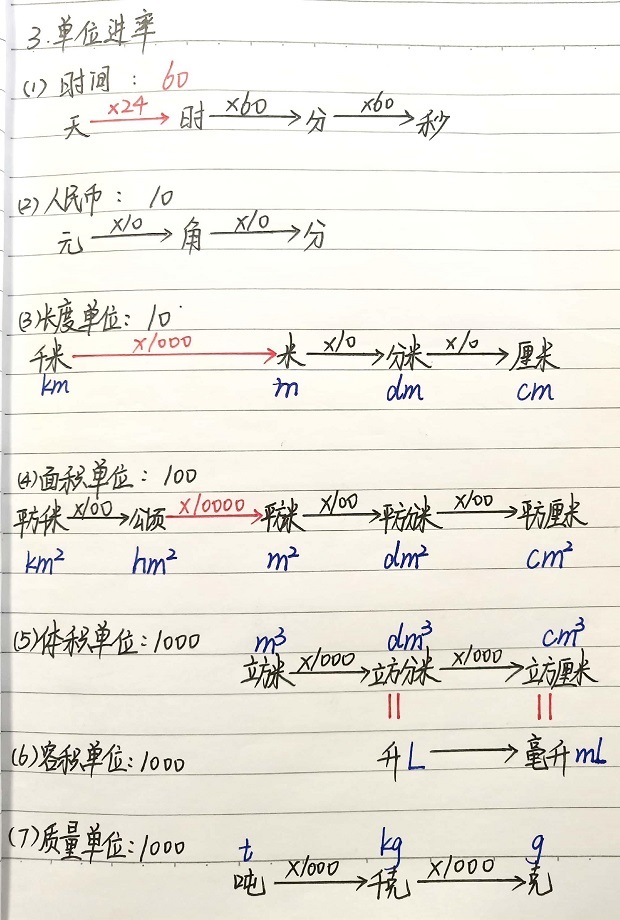 3.单位进率
(1) 时间：60
天 ×24 时 ×60 分 ×60 秒
(2) 人民币：10
元 ×10 角 ×10 分
(3)长度单位：10
千米 ×1000 米 ×10 分米 ×10 厘米
km m dm cm
(4)面积单位：100
平方千米 ×100 公顷 ×10000 平方米 ×100 平方分米 ×100 平方厘米
km² hm² m² dm² cm²
(5)体积单位：1000 m³ dm³ cm³
立方米 ×1000 立方分米 ×1000 立方厘米
(6)容积单位：1000 升L 毫升mL
(7)质量单位：1000 t kg g
吨 ×1000 千克 ×1000 克